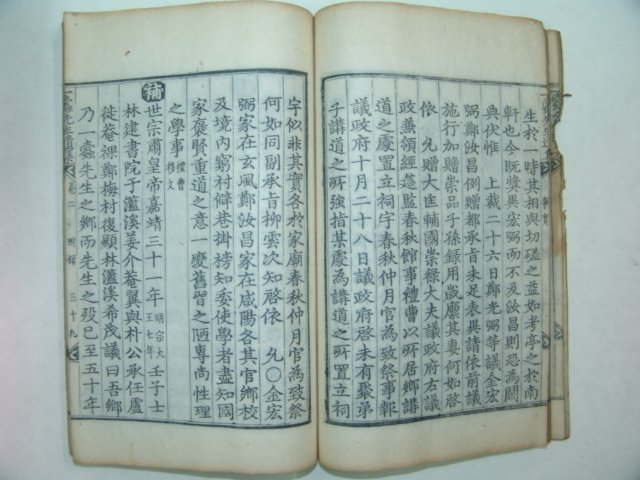 生於一時其相與切磋之益如考亭之於南
軒也今既獎異宏弼而不及汝昌則恐為闕
典伏惟 上裁二十六日鄭光弼等議金宏
弼鄭汝昌例贈都承肯未足表異請依前議
施行加贈崇品子孫錄用歲廩其妻何如啓
依 允贈大匡輔國崇祿大夫議政府右議
政兼領經筵監春秋館事禮曹以所居鄉講
道之處置立祠宇春秋仲月官為致祭事報
議政府十月二十八日議政府啓未有聚弟
子講道之所強指某處為講道之所置立祠
宇似非其實各於家廟春秋仲月官為致祭
何如同副承肯柳雲次知啓依 允○金宏
弼家在玄風鄭汝昌家在咸陽各其官鄉校
及境內窮村僻巷掛榜知委使學者盡知國
家褒賢重道之意一變舊習之陋專尚性理
之學事 禮曹移文
補 世宗肅皇帝嘉靖三十一年 明宗大王七年 壬子士
林建書院于灆溪姜介菴翼與朴公承任盧
徙菴祼鄭梅村復顯林灆溪希茂議曰吾鄉
乃一蠹先生之鄉而先生之發已至五十年
卷二 附錄 三十九